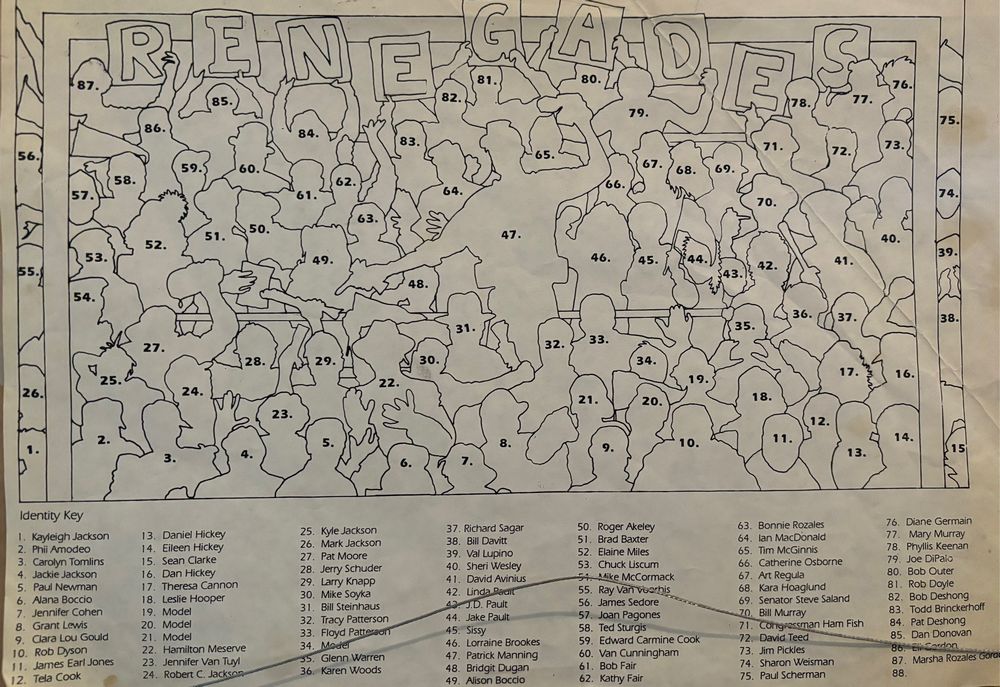 RENEGADES
87.
85.
81.
80.
76.
82.
78.
77.
79.
75.
86.
84.
83.
65.
71.
72.
73.
56.
58.
59.
60.
61.
62.
64.
66.
67.
68.
69.
57.
74.
70.
63.
52.
51.
50.
47.
40.
53.
49.
46.
45.
44.
42.
41.
39.
55.
43.
54.
48.
38.
31.
35.
36.
37.
27.
32.
33.
28.
29.
30.
34.
25.
24.
22.
19.
17.
16.
26.
18.
21.
20.
23.
12.
2.
5.
8.
10.
11.
14.
1.
3.
4.
6.
7.
9.
13.
15
Identity Key
1. Kayleigh Jackson
2. Phil Amodeo
3. Carolyn Tomlins
4. Jackie Jackson
5. Paul Newman
6. Alana Boccio
7. Jennifer Cohen
8. Grant Lewis
9. Clara Lou Gould
10. Rob Dyson
11. James Earl Jones
12. Tela Cook
13. Daniel Hickey
14. Eileen Hickey
15. Sean Clarke
16. Dan Hickey
17. Theresa Cannon
18. Leslie Hooper
19. Model
20. Model
21. Model
22. Hamilton Meserve
23. Jennifer Van Tuyl
24. Robert C. Jackson
25. Kyle Jackson
26. Mark Jackson
27. Pat Moore
28. Jerry Schuder
29. Larry Knapp
30. Mike Soyka
31. Bill Steinhaus
32. Tracy Patterson
33. Floyd Patterson
34. Model
35. Glenn Warren
36. Karen Woods
37. Richard Sagar
38. Bill Davitt
39. Val Lupino
40. Sheri Wesley
41. David Avinius
42. Linda Pault
43. J.D. Pault
44. Jake Pault
45. Sissy
46. Lorraine Brookes
47. Patrick Manning
48. Bridgit Dugan
49. Alison Boccio
50. Roger Akeley
51. Brad Baxter
52. Elaine Miles
53. Chuck Liscum
54. Mike McCormack
55. Ray Van Voorhis
56. James Sedore
57. Joan Pagones
58. Ted Sturgis
59. Edward Carmine Cook
60. Van Cunningham
61. Bob Fair
62. Kathy Fair
63. Bonnie Rozales
64. Ian MacDonald
65. Tim McGinnis
66. Catherine Osborne
67. Art Regula
68. Kara Hoaglund
69. Senator Steve Saland
70. Bill Murray
71. Congressman Ham Fish
72. David Teed
73. Jim Pickles
74. Sharon Weisman
75. Paul Scherman
76. Diane Germain
77. Mary Murray
78. Phyllis Keenan
79. Joe DiPalo
80. Bob Outer
81. Rob Doyle
82. Bob Deshong
83. Todd Brinckerhoff
84. Pat Deshong
85. Dan Donovan
86. Gordon
87. Marsha Rozales
88.